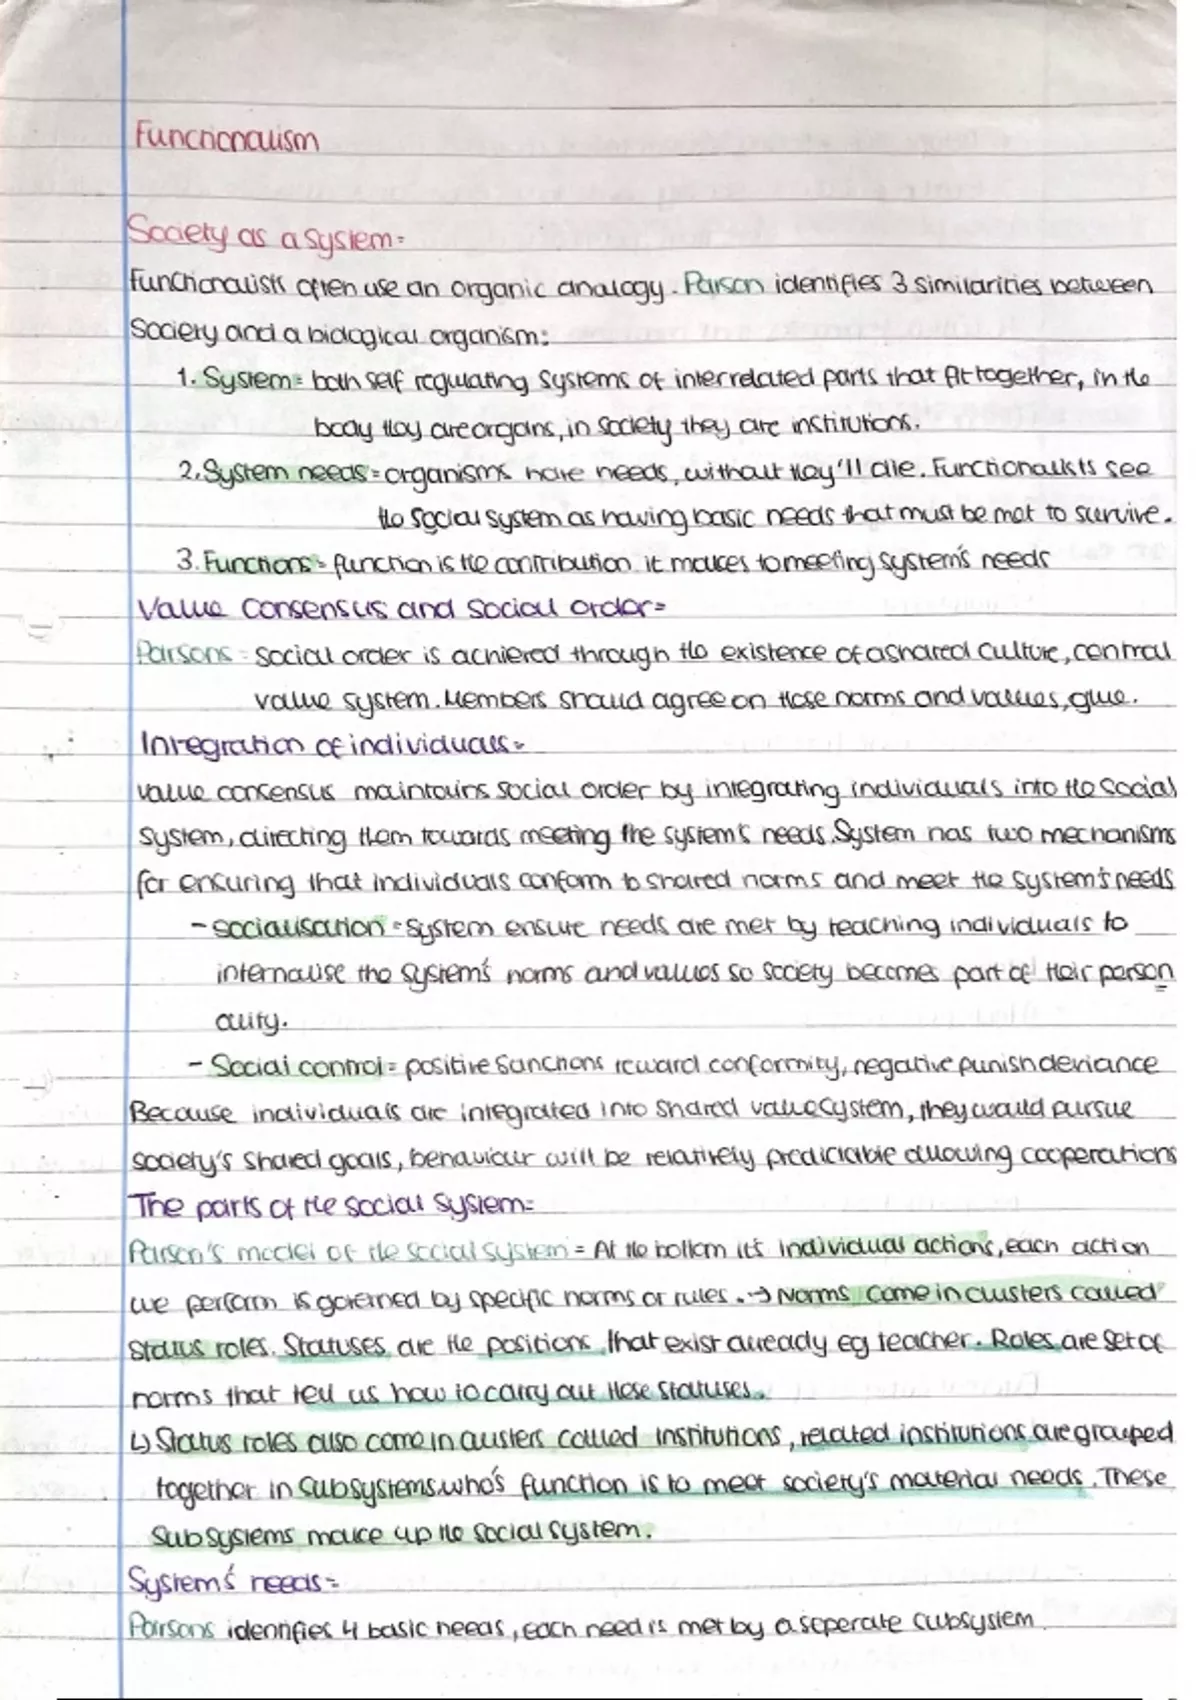 Functionalism
Society as a system=
Functionalists often use an organic analogy. Parson identifies 3 similarities between
Society and a biological organism:
1. System= both self regulating systems of interrelated parts that fit together, in the
body they are organs, in society they are institutions.
2. System needs= organisms have needs, without they'll die. Functionalists see
the social system as having basic needs that must be met to survive.
3. Functions= function is the contribution it makes to meeting system's needs
Value consensus and social order=
Parsons= social order is achieved through the existence of a shared culture, central
value system. Members should agree on these norms and values, glue.
Integration of individuals=
Value consensus maintains social order by integrating individuals into the social
system, directing them towards meeting the system's needs. System has two mechanisms
for ensuring that individuals conform to shared norms and meet the system's needs
- Socialisation = System ensure needs are met by teaching individuals to
internalise the system's norms and values so society becomes part of their person
ality.
- Social control= positive sanctions reward conformity, negative punish deviance
Because individuals are integrated into shared value system, they would pursue
society's shared goals, behaviour will be relatively predictable allowing cooperations
The parts of the social system=
Parson's model of the social system = At the bottom it's individual actions, each action
we perform is governed by specific norms or rules. → Norms come in clusters called
status roles. Statuses are the positions that exist already eg teacher. Roles are set of
norms that tell us how to carry out these statuses.
↳ Status roles also come in clusters called institutions, related institutions are grouped
together in subsystems who's function is to meet society's material needs. These
subsystems make up the social system.
System's needs=
Parsons identifies 4 basic needs, each need is met by a seperate subsystem